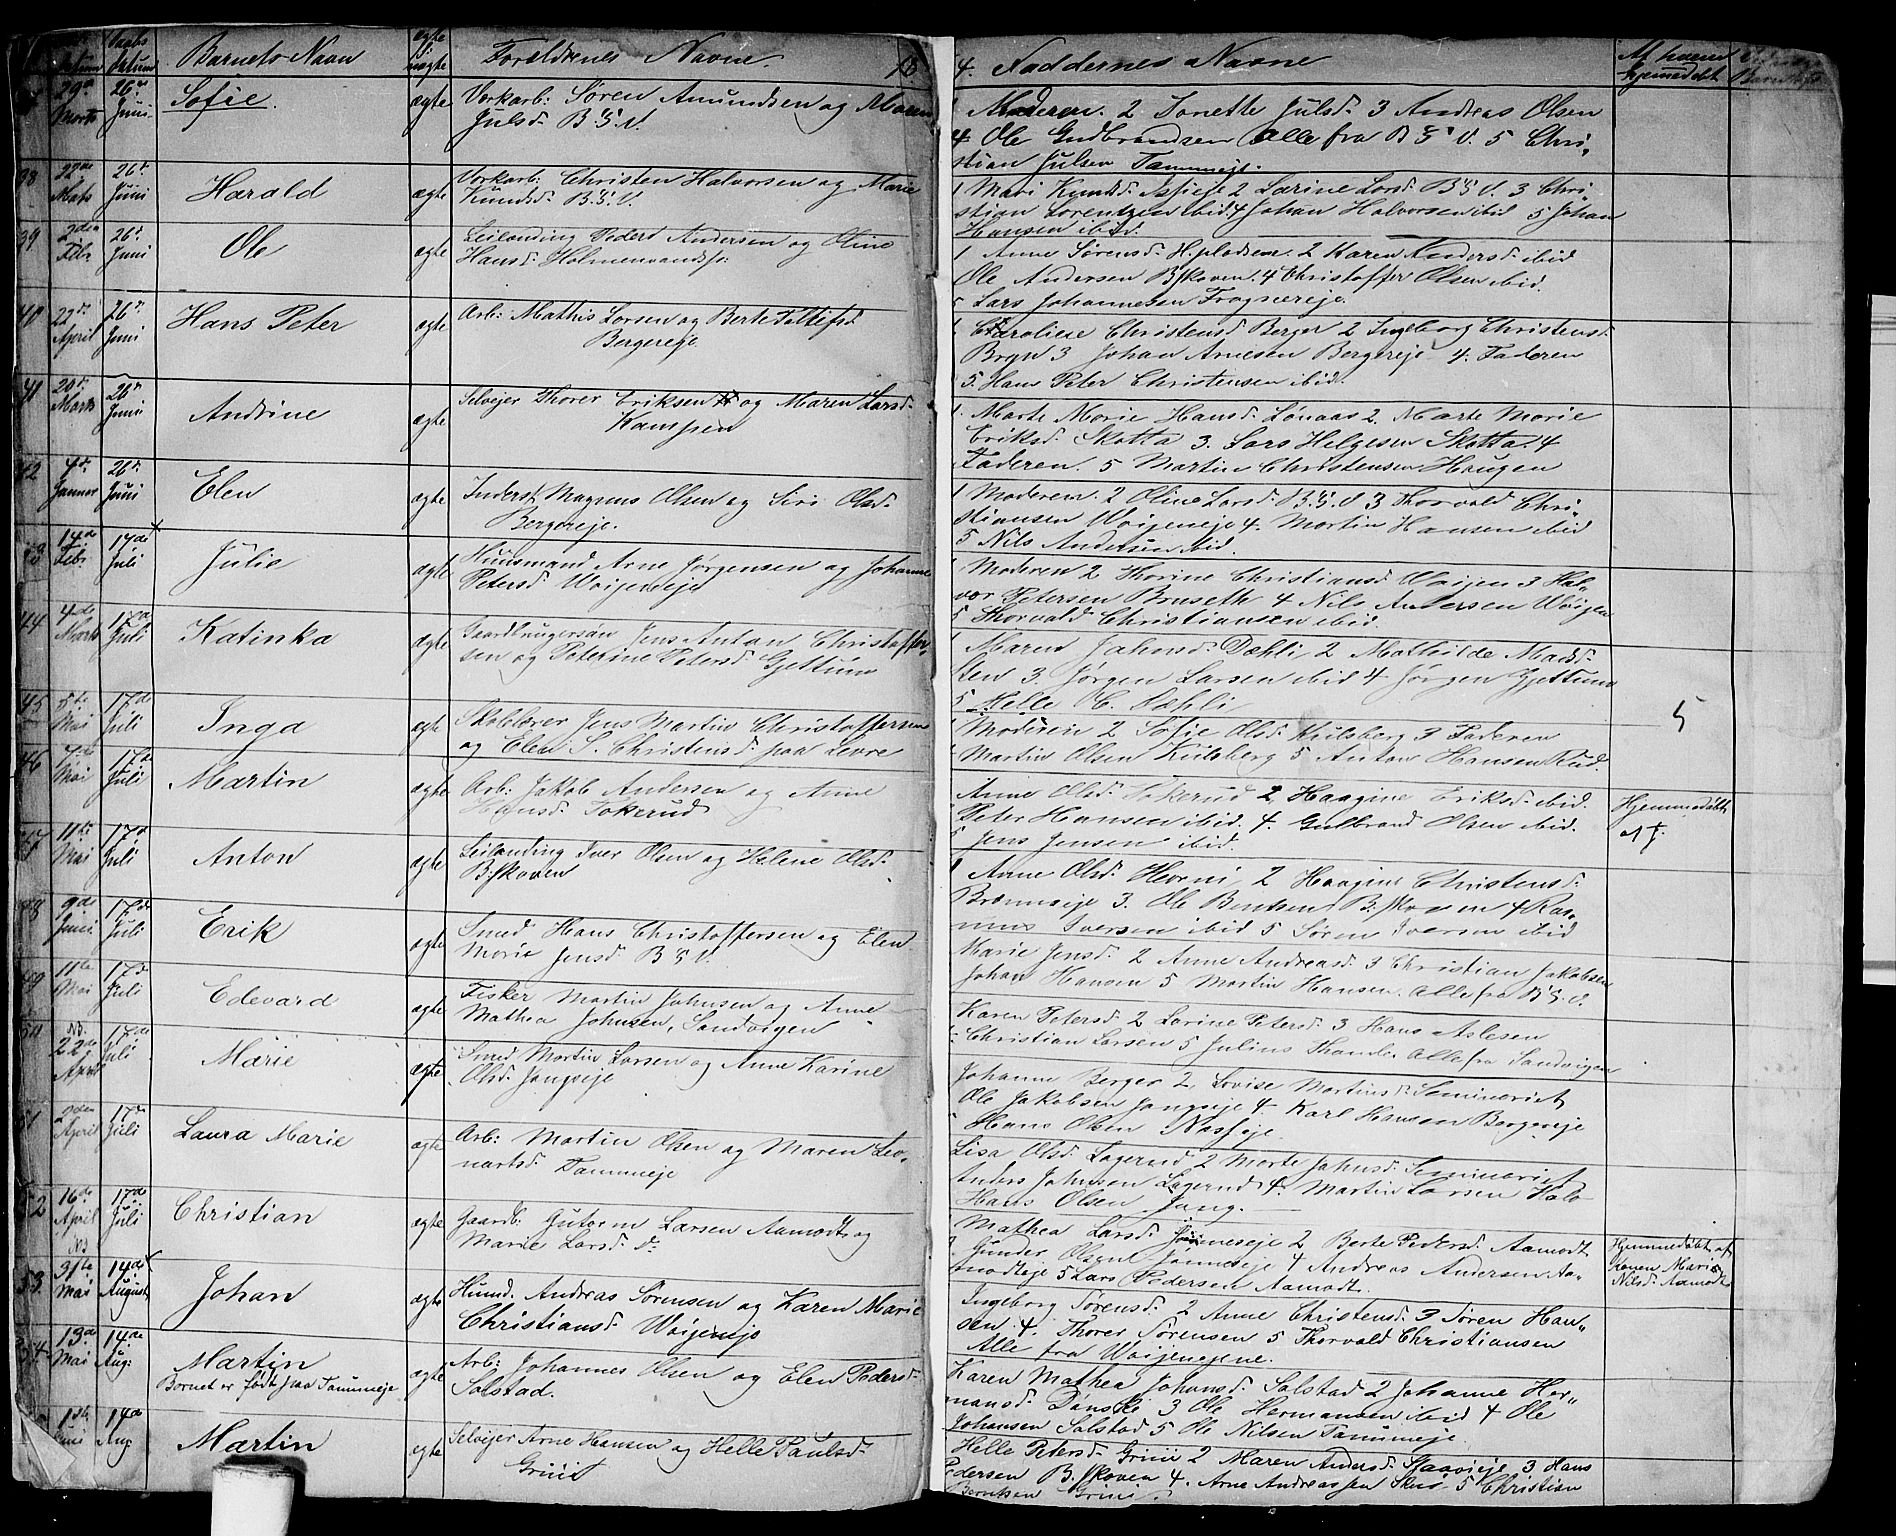 Barnets Navn
Forældrenes Navne.
4. Faddernes Navne
29de Marts 26de Juni Sofie ægte Værkarb: Søren Amundsen og Maren
Julsd. B.J.V.
1 Moderen. 2 Tonette Julsd. 3 Andreas Olsen
4 Ole Gudbrandsen Alle fra B J V. 5 Chri-
stian Julsen Tanumeje.
38 22de Mars 26de Juni Harald ægte Værkarb: Christen Halvorsen og Marie
Knudsd. B.J.V.
1 Mari Knudsd. 2 Larine Larsd. B J V. 3 Chri-
stian Lorentzen ibid. 4 Johan Halvorsen ibid 5 Johan
Hansen ibid.
39 Febr 26de Juni Ole ægte Leilænding Peder Andersen og Oline
Hansd. Holmen
1 Anne Sørensd. 2 Karen Andersd. ibid
Ole Andersen B.skoven. 4 Christoffer Olsen ibid.
5 Lars Johannesen Frognereje.
22de April 26de Juni Hans Peter ægte Arb: Mathis Larsen og Berte
Bergereje
1 Karoline Christensd. Berger 2 Ingeborg Christensd.
Bryn 3 Johan Arnesen Bergereje 4. Faderen
5. Hans Peter Christensen ibid.
41 20de Marts 26de Juni Andrine ægte Selvejer Thorer Eriksen og Maren Larsd.
Kampen
1. Marte Marie Hansd. Lønaas 2. Marte Marie
Eriksd. Skotta 3. Lars Helgesen Skotta. 4
Faderen. 5 Martin Christensen Haugen
42 4de Januar 26de Juni Elen ægte Inderst Magnus Olsen og Siri Olsd.
Bergereje.
1 Moderen. 2 Oline Larsd. B.J.V 3 Thorvald Chri-
stiansen Wøijeneje 4. Martin Hansen ibid
5 Nils Andersen ibid.
14de Febr 17de Juli Julie ægte Huusmand Arne Jørgensen og Johanne
Petersd. Wøijeneje
1 Moderen 2 Thorine Christiansd. Wøijen 3 Hal-
vor Petersen Bruseth 4 Nils Andersen Wøijen
5 Thorvald Christiansen ibid.
44 4de Marts 17de Juli Katinka ægte Gaardbrugersøn Jens Anton Christoffer-
sen og Peterine Petersd. Gjettum
1 Maren Jahnsd. Dæhli 2 Mathilde Madsd.
Sten 3. Jørgen Larsen ibid 4 Jørgen Gjettum
5 Helle C. Dæhli
45 5te Mai 17de Juli Inga ægte Skolelærer Jens Martin Christoffersen
og Elen S. Christensd. paa Levre
1 Moderen 2 Sofie Olsd. Kulsberg 3 Faderen
Martin Olsen Kulsberg 5 Anton Hansen Rud.
5
46 Mai 17de Juli Martin ægte Arb: Jakob Andersen og Anne
Hansd. Tokerud
Anne Olsd. Tokerud 2 Haagine Eriksd. ibid.
Peter Hansen ibid. 4. Gulbrand Olsen ibid.
5 Jens Jensen ibid.
Hjemmedøbt
af J.
47 11te Mai 17de Juli Anton ægte Leilænding Iver Olsen og Helene Olsd.
B.skoven
1 Anne Olsd. Horni 2 Haagine Christensd.
3. Ole Berntsen B.skoven 4 Ras-
mus Iversen ibid 5 Søren Iversen ibid
48 9de Juni 17de Juli Erik ægte Smed Hans Christoffersen og Elen
Marie Jensd. B J V.
Marie Jensd. 2 Anne Andreasd. 3 Christian Jakobsen
Johan Hansen 5 Martin Hansen. Alle fra B J V.
49 11te Mai 17de Juli Edevard ægte Fisker Martin Johnsen og Anne
Mathea Johnsen, Sandvigen
Karen Petersd. 2 Larine Petersd. 3 Hans Aslesen
Christian Larsen 5 Julius Alle fra Sandvigen
50 NB. 22de April 17de Juli Marie ægte Smed Martin Larsen og Anne Karine
Olsd. Jongseje
Johanne Berger 2 Lovise Martinsd. Seminariet
Ole Jakobsen Jongseje 4. Karl Hansen Bergereje
Hans Olsen Næsseje.
51 April 17de Juli Laura Marie ægte Arb: Martin Olsen og Maren Leo-
nartsd. Tanumeje
Lisa Olsd. Løgerud 2 Marte Jahnsd. Seminariet
Anders Johnsen Løgerud 4. Martin Larsen
Hans Olsen Jong.
52 16de April 17de Juli Christian ægte Gaardb: Gutorm Larsen Aamodt og
Marie Larsd. Do
Mathea Larsd. 2 Berte Pedersd. Aamodt
3. Gunder Olsen 4 Andreas Andersen Aa-
modteje 5 Lars Pedersen Aamodt.
Hjemmedøbt af
Karen Marie
Nilsd. Aamodt
53 NB 31te Mai 14de August Johan ægte Huusm. Andreas Sørensen og Karen Marie
Christiansd. Wøijeneje
Ingeborg Sørensd. 2 Anne Christensd. 3 Søren Han-
sen. 4. Thorer Sørensen 5 Thorvald Christiansen
Alle fra Wøijenejene.
54 13de Mai 14de Aug: Martin
Barnet er født paa Tanumeje
ægte Arb: Johannes Olsen og Elen Pedersd.
Solstad.
Karen Mathea Johansd. Solstad 2 Johanne Her-
mansd. Dønski 3 Ole Hermansen ibid 4 Ole
Johansen Solstad 5 Ole Nilsen Tanumeje.
1ste Juni 14de Aug Martin ægte Selvejer Arne Hansen og Helle Paulsd.
Grini
Helle Petersd. Grini 2 Maren Andersd. 3 Hans
Pedersen B.skoven 4. Arne Andreassen Skui 5 Christian
Berntsen Grini.